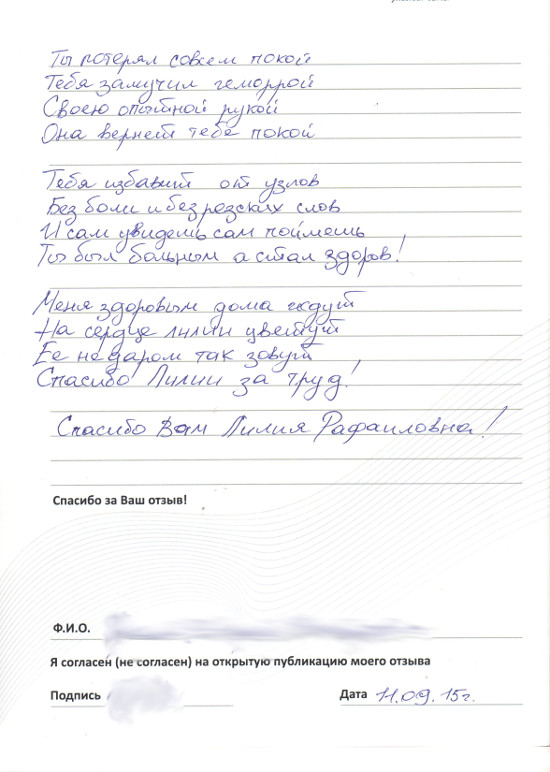 Ты потерял совсем покой
Тебя замучил геморрой
Своею опытной рукой
Она вернет тебе покой
Тебя избавит от узлов
Без боли и без резских слов
И сам увидешь сам поймешь
Ты был больным а стал здоров!
Меня здоровым дома ждут
На сердце лилии цветут
Ее не даром так зовут
Спасибо Лилии за труд!
Спасибо Вам Лилия Рафаиловна!
Спасибо за Ваш отзыв!
Ф.И.О.
Я согласен (не согласен) на открытую публикацию моего отзыва
Подпись Дата 11.09.15г.